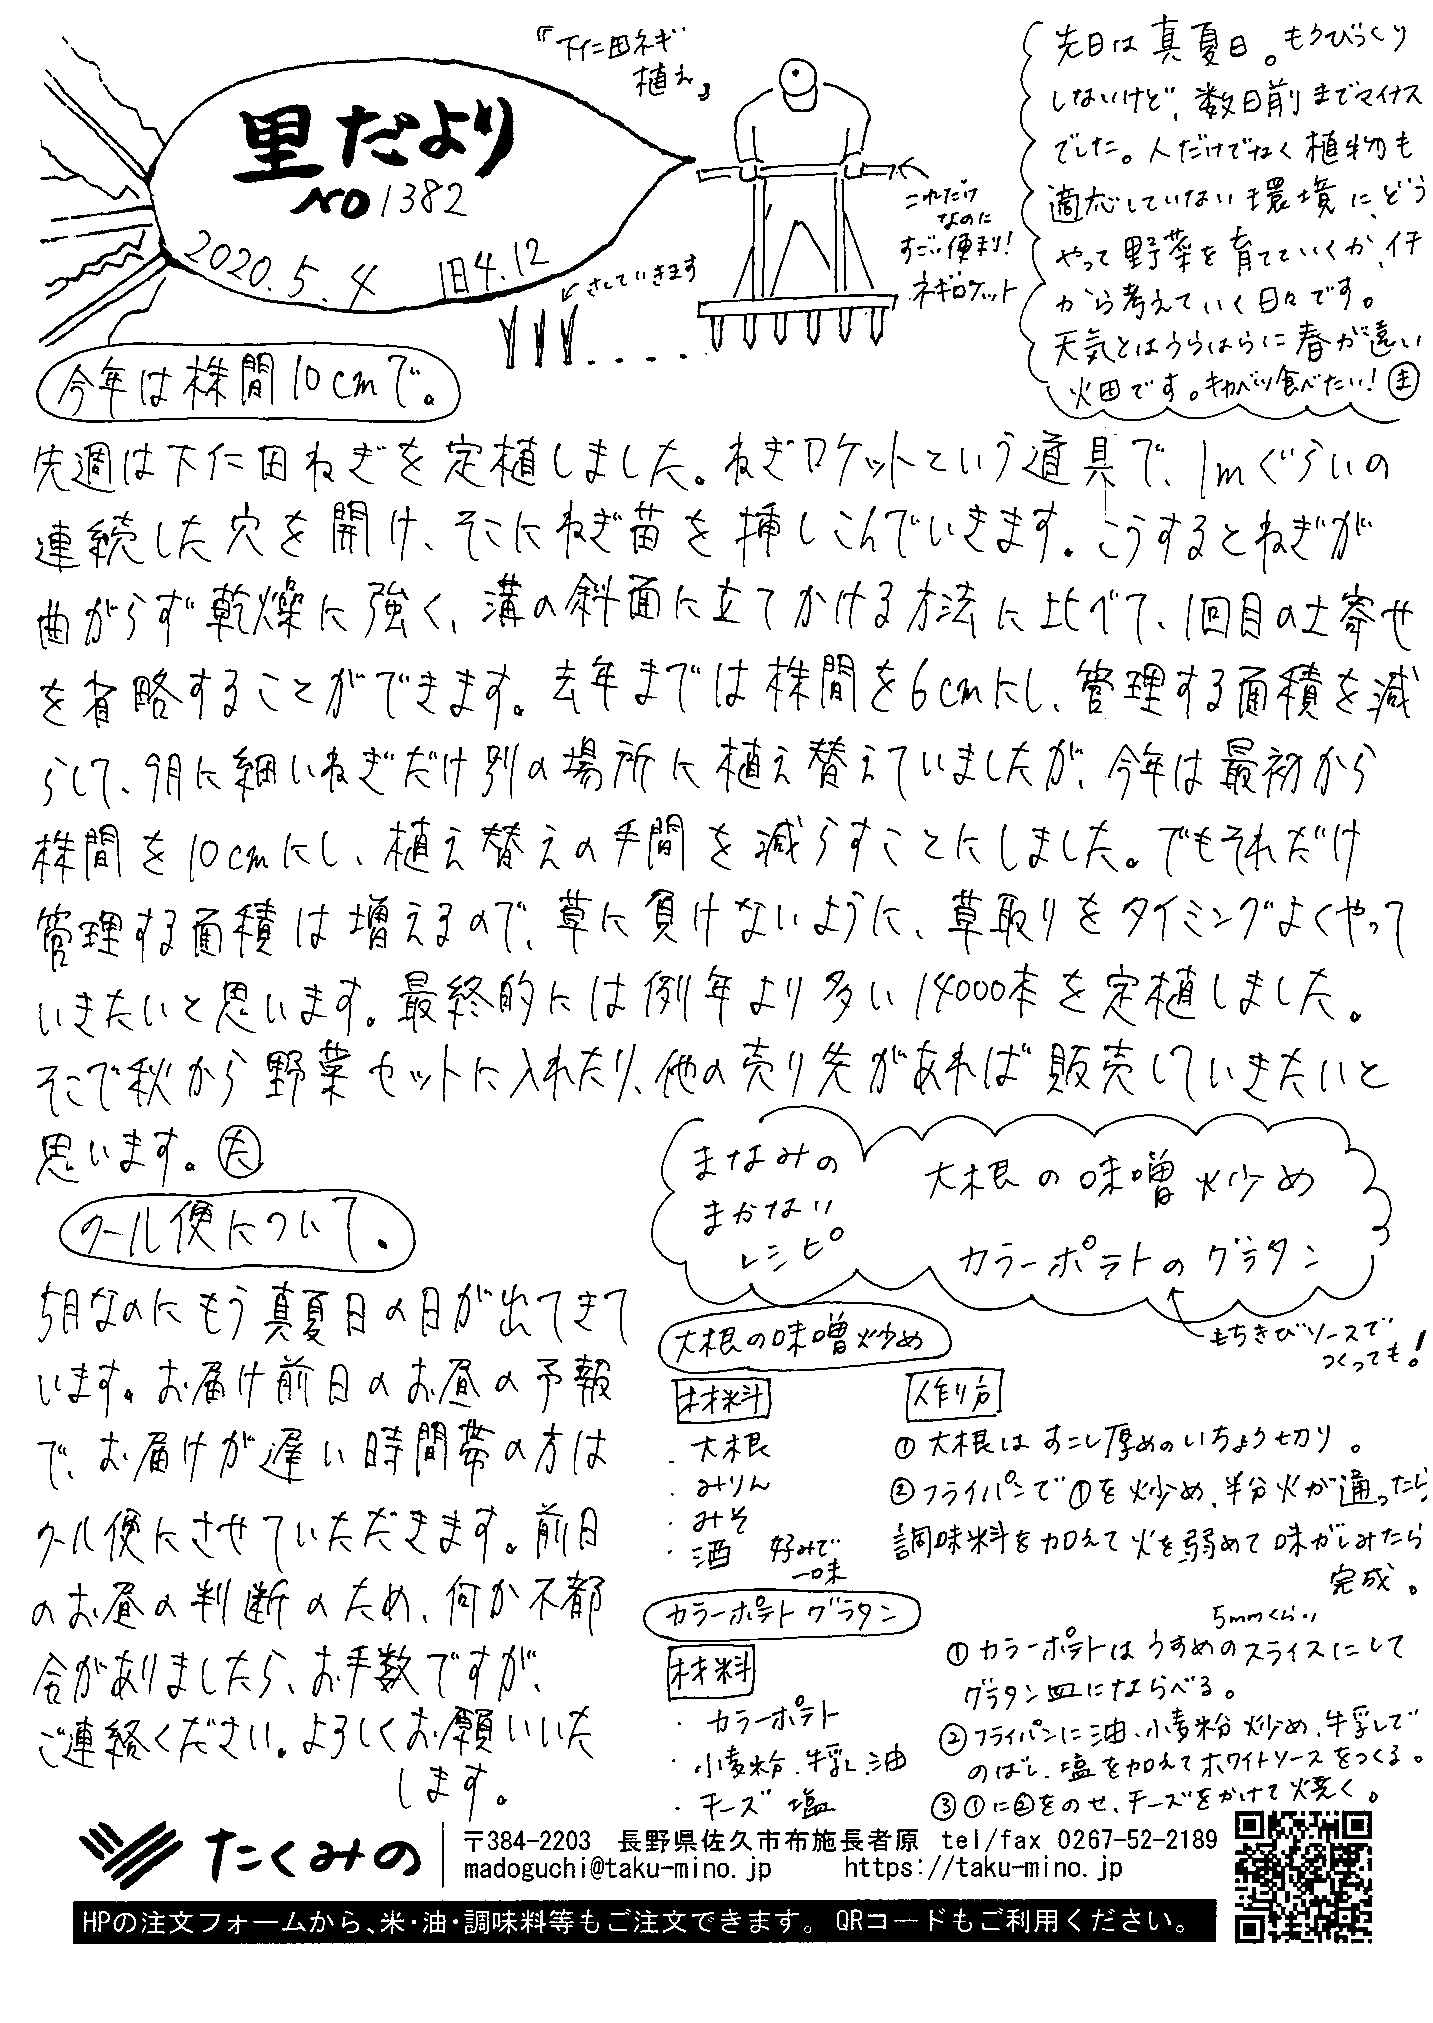 里だより
NO 1382
2020.5.4 旧4.12
『下仁田ネギ
植え』
これだけ
なのに
すごい便利!
ネギロケット
さしていきます
先日は真夏日。もうびっくり
しないけど、数日前までマイナス
でした。人だけでなく植物も
適応していない環境に、どう
やって野菜を育てていくか、イチ
から考えていく日々です。
天気とはうらはらに春が遠い
畑です。キャベツ食べたい!(ま)
今年は株間10cmで。
先週は下仁田ねぎを定植しました。ねぎロケットという道具で、1mぐらいの
連続した穴を開け、そこにねぎ苗を挿しこんでいきます。こうするとねぎが
曲がらず乾燥に強く、溝の斜面に立てかける方法に比べて、1回目の土寄せ
を省略することができます。去年までは株間を6cmにし、管理する面積を減
らして、9月に細いねぎだけ別の場所に植え替えていましたが、今年は最初から
株間を10cmにし、植え替えの手間を減らすことにしました。でもそれだけ
管理する面積は増えるので、草に負けないように、草取りをタイミングよくやって
いきたいと思います。最終的には例年より多い14000本を定植しました。
そこで秋から野菜セットに入れたり、他の売り先があれば販売していきたいと
思います。(た)
クール便について。
5月なのにもう真夏日の日が出てきて
います。お届け前日のお昼の予報
で、お届けが遅い時間帯の方は
クール便にさせていただきます。前日
のお昼の判断のため、何か不都
合がありましたら、お手数ですが、
ご連絡ください。よろしくお願いいた
します。
まなみの
まかない
レシピ
大根の味噌炒め
カラーポテトのグラタン
もちきびソースで
つくっても!
大根の味噌炒め
材料
・大根
・みりん
・みそ
・酒 好みで
一味
作り方
①大根はすこし厚めのいちょう切り。
②フライパンで①を炒め、半分火が通ったら
調味料を加えて火を弱めて味がしみたら
完成。
カラーポテトグラタン
材料
・カラーポテト
・小麦粉、牛乳、油
・チーズ 塩
5mmくらい
①カラーポテトはうすめのスライスにして
グラタン皿にならべる。
②フライパンに油、小麦粉炒め、牛乳しで
のばし、塩を加えてホワイトソースをつくる。
③①に②をのせ、チーズをかけて焼く。
たくみの
〒384-2203 長野県佐久市布施長者原 tel/fax 0267-52-2189
madoguchi@taku-mino.jp https://taku-mino.jp
HPの注文フォームから、米・油・調味料等もご注文できます。 QRコードもご利用ください。